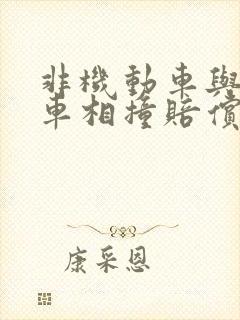 非機動車與
車相撞賠償
康采恩